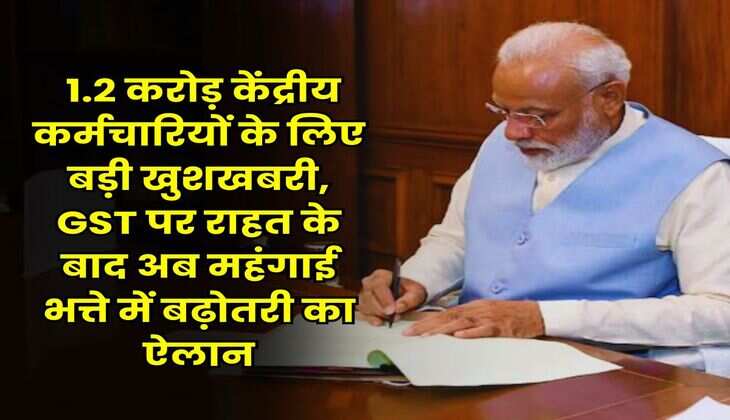 1.2 करोड़ केंद्रीय
कर्मचारियों के लिए
बड़ी खुशखबरी,
GST पर राहत के
बाद अब महंगाई
भत्ते में बढ़ोतरी का
ऐलान